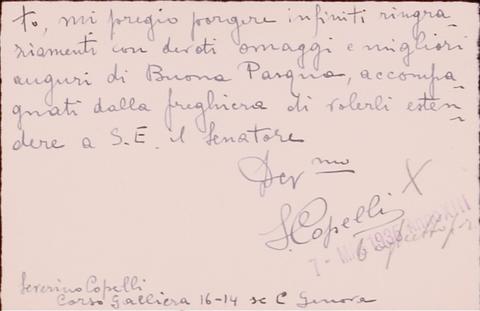 to, mi pregio porgere infiniti ringra
ziamenti con devoti omaggi e migliori
auguri di Buona Pasqua, accompa
gnati dalla preghiera di volerli esten=
dere a S.E. il Senatore
Dev mo
S. Copelli X
7 - MAG 1935 ANNO XIII
Severino Copelli
Corso Galliera 16-14 sc C Genova